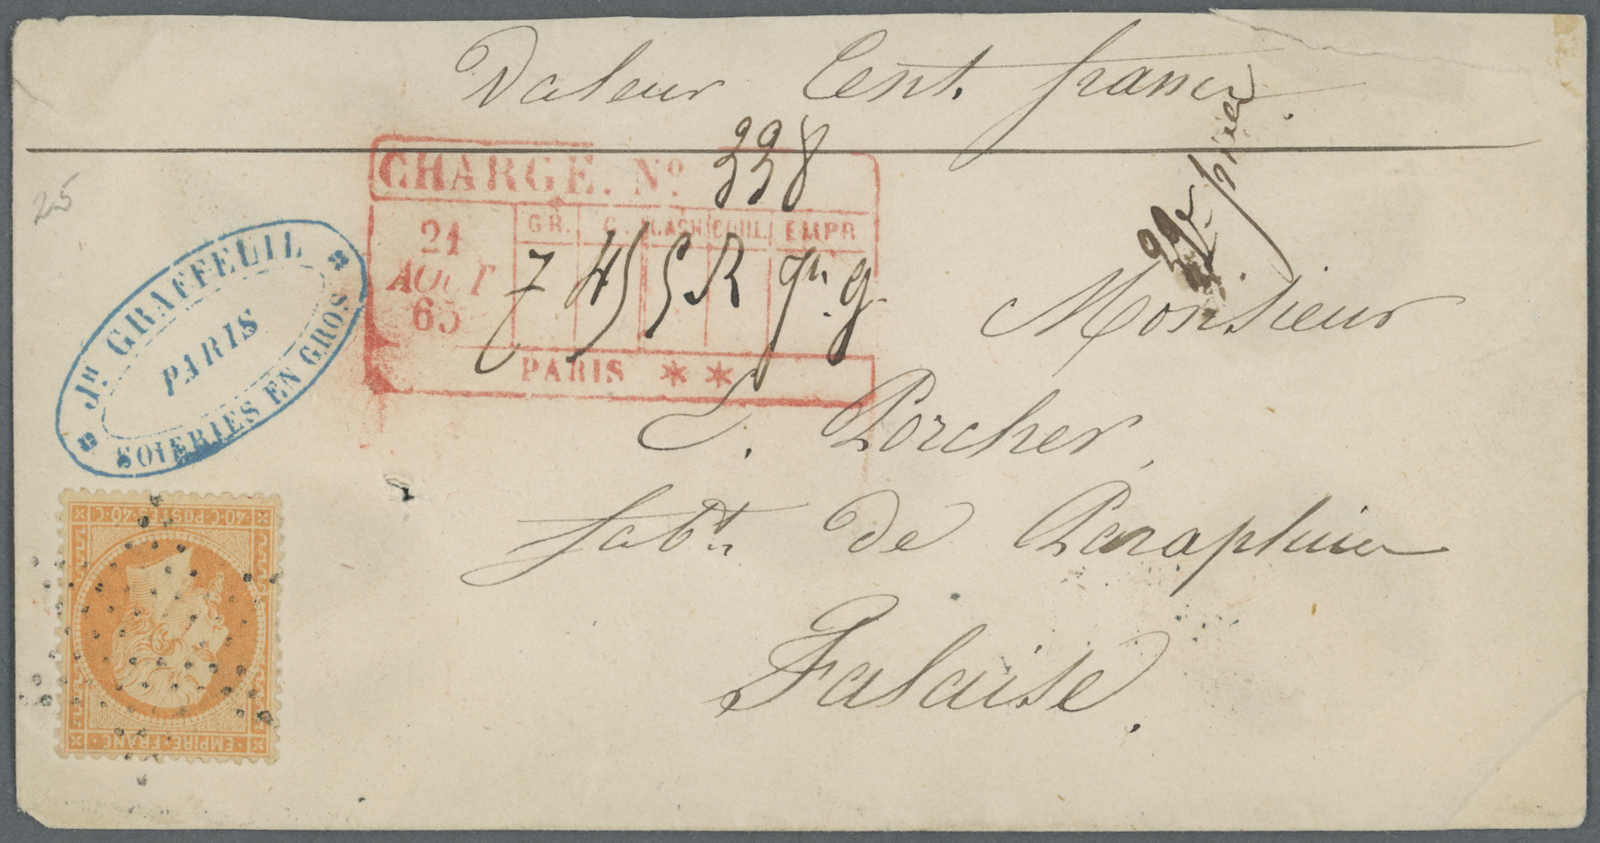 Valeur Cent francs.
CHARGÉ. Nº 338
21
AOUT
65
GR. C. CACH COUL. EMPR
7 45 5 R
PARIS
25
Jh GRAFFEUIL
PARIS
SOIERIES EN GROS
Monsieur
L. Porcher,
fabt. de Paraphines
Falaise.
40·C·POSTES·40·C
EMPIRE·FRANC